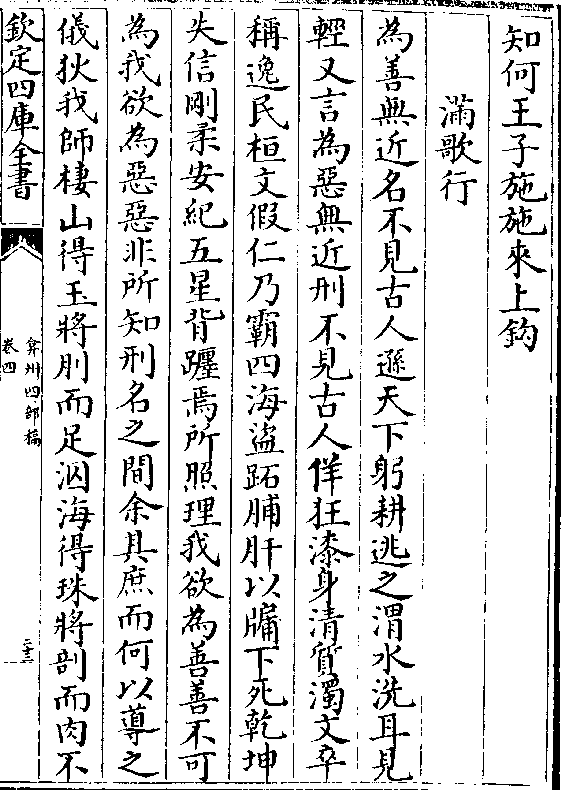 知何王子施施來上鈎
滿歌行
為善無近名不見古人遜天下躬耕逃之渭水洗耳見
輕又言為惡無近刑不見古人佯狂漆身清質濁文卒
稱逸民桓文假仁乃霸四海盜跖脯肝以牖下死乾坤
失信剛柔安紀五星背躔焉所照理我欲為善善不可
為我欲為惡惡非所知刑名之間余具庶而何以導之
儀狄我師棲山得玉將刖而足泅海得珠將剖而肉不
欽定四庫全書
弇州四部稿
卷四
二十三